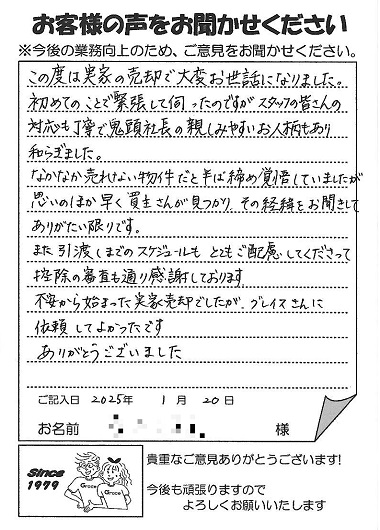 お客様の声をお聞かせください
※今後の業務向上のため、ご意見をお聞かせください。
この度は実家の売却で大変お世話になりました。
初めてのことで緊張して伺ったのですがスタッフの皆さんの
対応も丁寧で鬼頭社長の親しみやすいお人柄もあり
和らぎました。
なかなか売れない物件だと半ば締め覚悟していましたが
思いのほか早く買主さんが見つかり、その経緯をお聞きして
ありがたい限りです。
また引渡しまでのスケジュールも とてもご配慮してくださって
控除の審査も通り感謝しております
不安から始まった実家売却でしたが、グレイスさんに
依頼してよかったです
ありがとうございました
ご記入日 2025年 1月 20日
お名前 様
Since
1979
Grace
Grace
貴重なご意見ありがとうございます!
今後も頑張りますので
よろしくお願いいたします